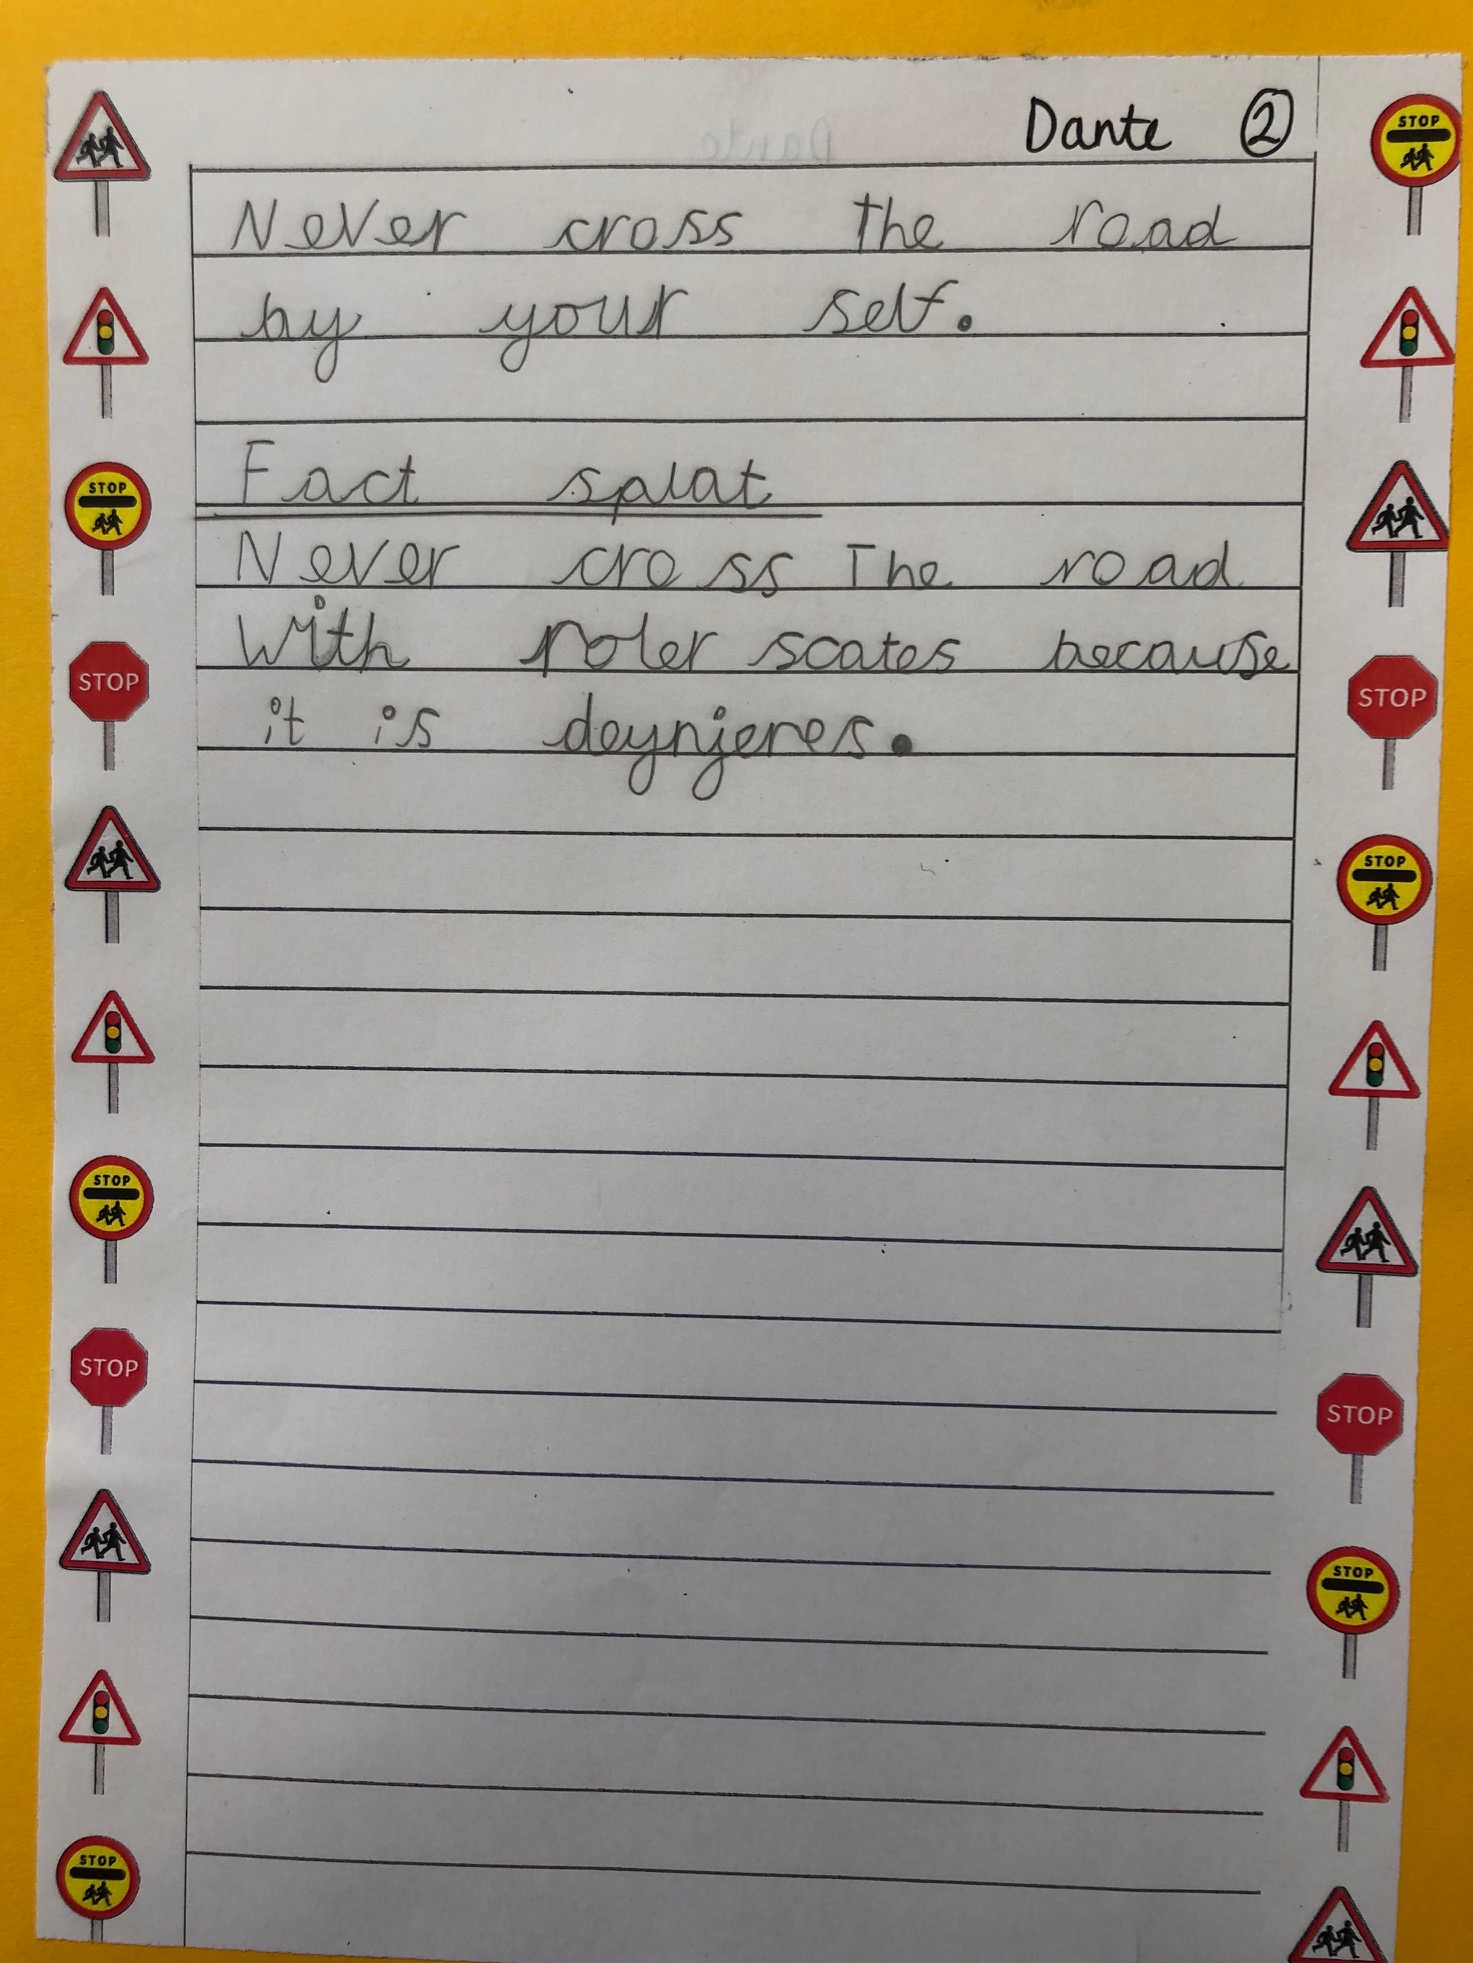 Dante ②
Never cross the road
by your self.
Fact splat
Never cross The road
With roler scates because
it is deynjeres.
STOP
STOP
STOP
STOP
STOP
STOP
STOP
STOP
STOP
STOP